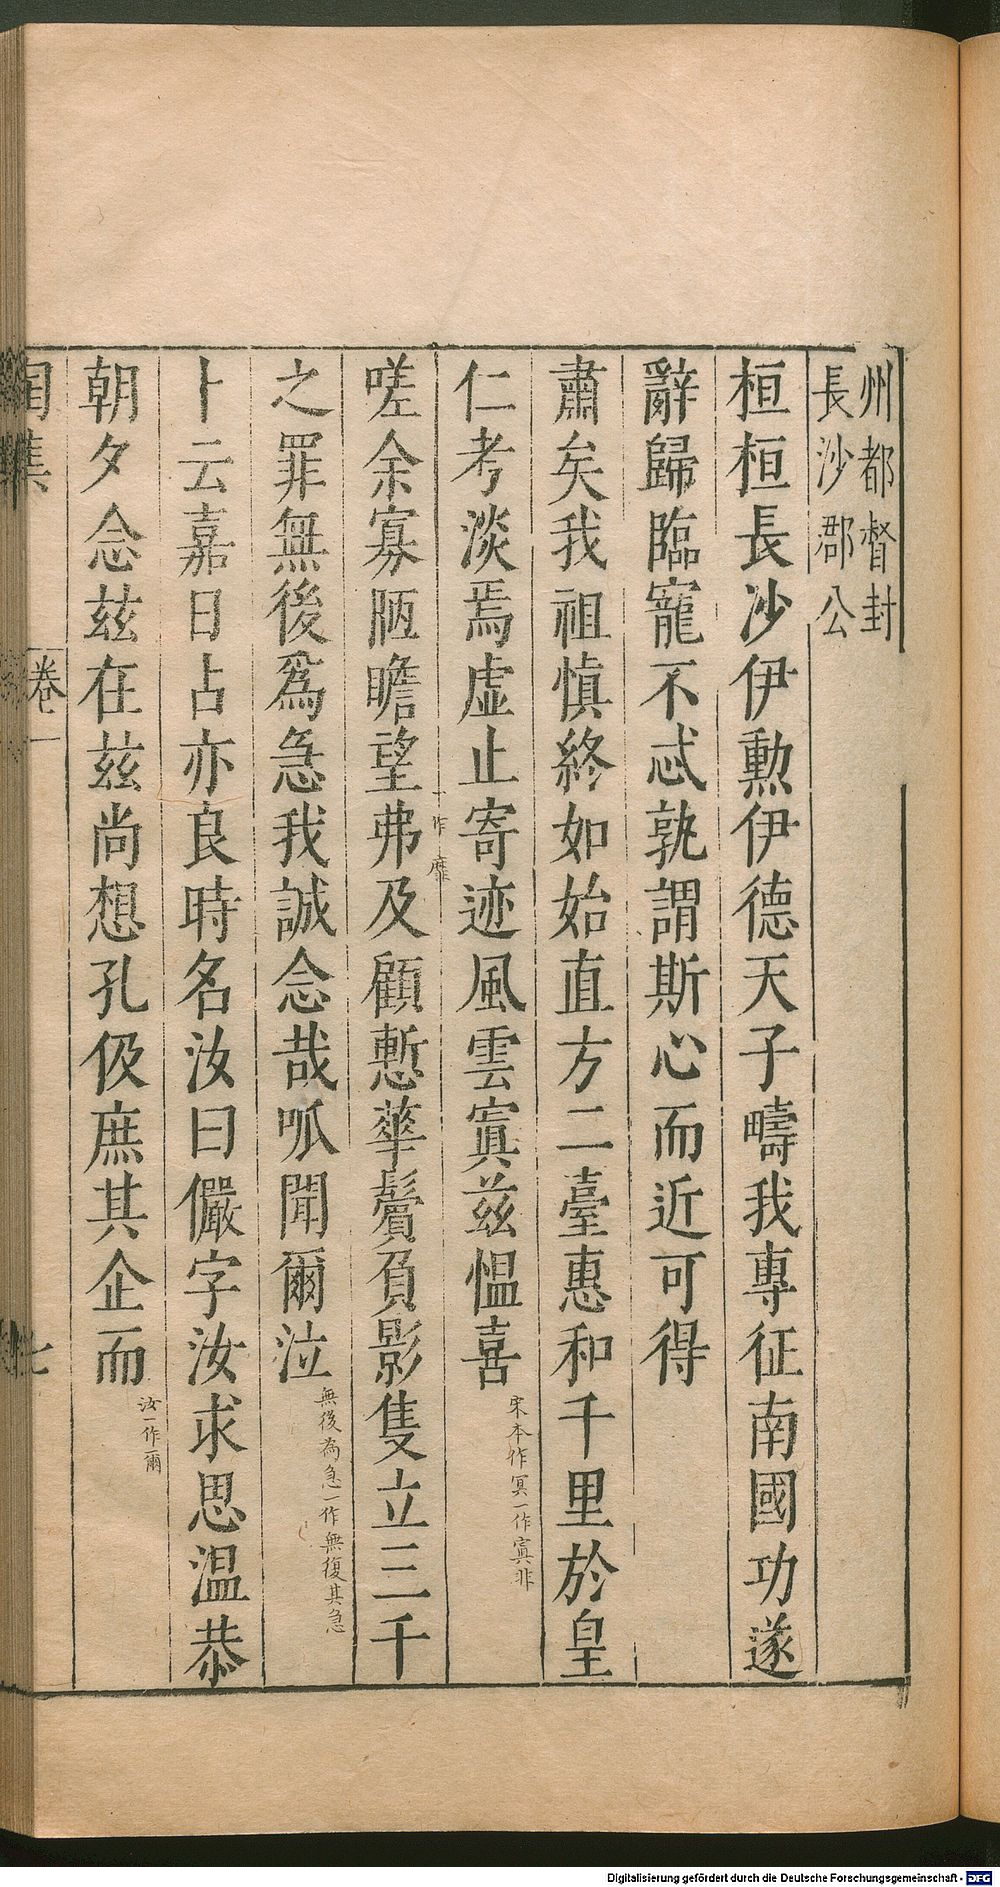 州都督封
長沙郡公
桓桓長沙伊勳伊德天子疇我專征南國功遂
辭歸臨寵不忒孰謂斯心而近可得
肅矣我祖慎終如始直方二臺惠和千里於皇
仁考淡焉虛止寄迹風雲寘兹慍喜
宋本作冥一作寘非
嗟余寡陋瞻望弗及顧慙華鬢負影隻立三千
一作靡
之罪無後爲急我誠念哉呱聞爾泣
無後為急一作無復其急
卜云嘉日占亦良時名汝曰儼字汝求思溫恭
朝夕念兹在兹尚想孔伋庶其企而
汝一作爾
陶集 卷一 七
Digitalisierung gefördert durch die Deutsche Forschungsgemeinschaft - DFG